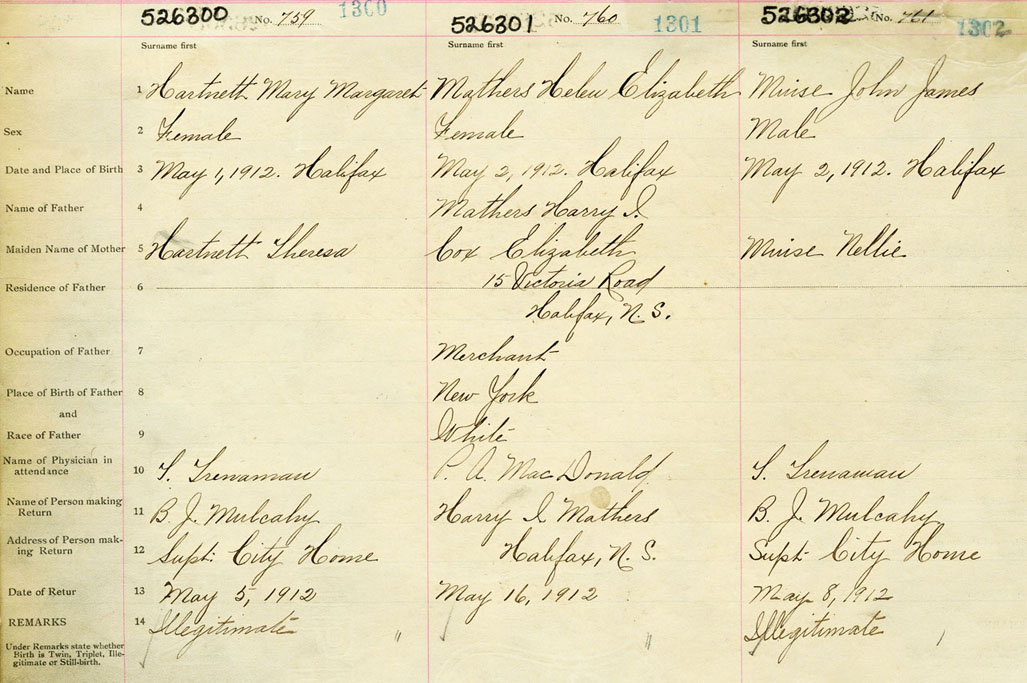 526300 No. 759 1300
526301 No. 760 1301
526302 No. 761 1302
Surname first Surname first Surname first
Name 1 Hartnett Mary Margaret Mathers Helen Elizabeth Muise John James
Sex 2 Female Female Male
Date and Place of Birth 3 May 1, 1912. Halifax May 2, 1912. Halifax May 2, 1912. Halifax
Name of Father 4 Mathers Harry I.
Maiden Name of Mother 5 Hartnett Theresa Cox Elizabeth Muise Nellie
Residence of Father 6 15 Victoria Road
Halifax, N. S.
Occupation of Father 7 Merchant
Place of Birth of Father 8 New York
and
Race of Father 9 White
Name of Physician in
attendance 10 T. Trenaman P. A. MacDonald T. Trenaman
Name of Person making
Return 11 B. J. Mulcahy Harry I Mathers B. J. Mulcahy
Address of Person mak-
ing Return 12 Supt. City Home Halifax, N. S. Supt. City Home
Date of Retur 13 May 5, 1912 May 16, 1912 May 8, 1912
REMARKS 14 Illegitimate Illegitimate
Under Remarks state whether
Birth is Twin, Triplet, Ille-
gitimate or Still-birth.